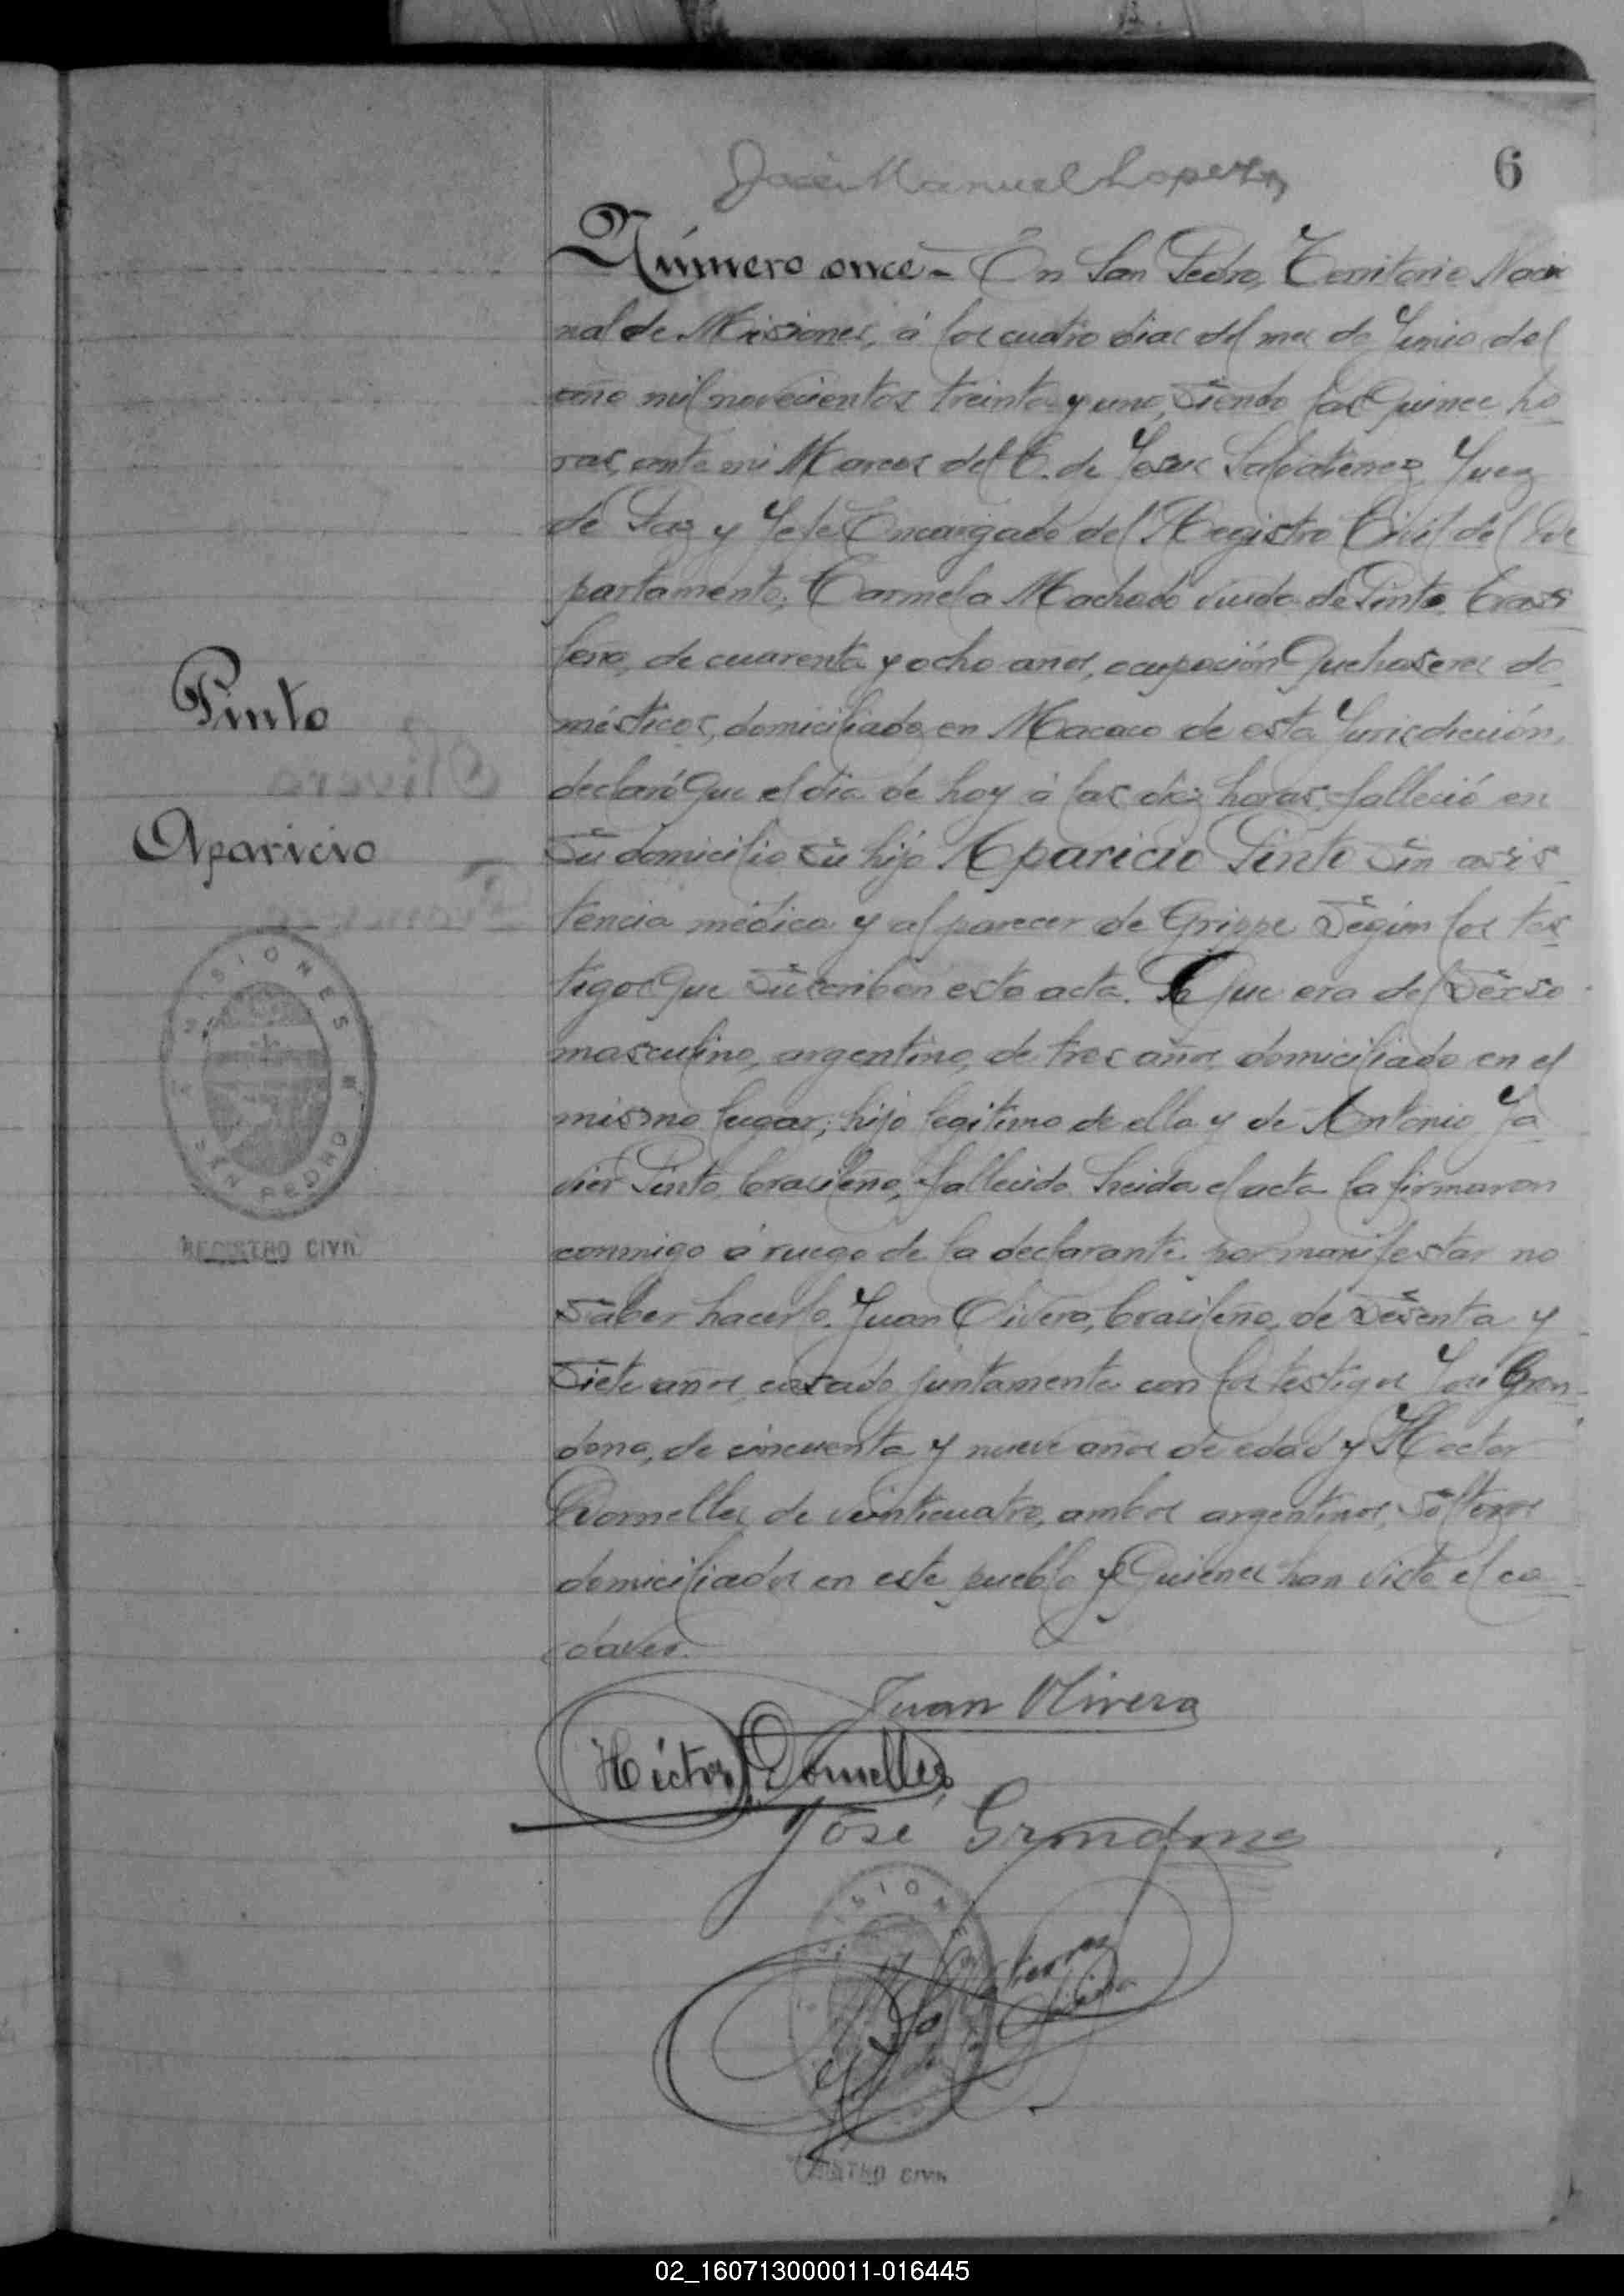 6
José Manuel Lopez
Número once - En San Pedro, Territorio Nacio
nal de Misiones, á los cuatro dias del mes de Junio del
año mil novecientos treinta y uno, siendo las Quince ho
ras, ante mi Marcos del C. de Jesus Salvatierra, Juez
de Paz y Jefe Encargado del Registro Civil del De
partamento; Carmela Machado viuda de Pinto, brasi
leña, de cuarenta y ocho años, ocupación Quehaseres do
mésticos, domiciliada en Macaco de esta Jurisdicción,
declaró Que el dia de hoy á las diez horas falleció en
Su domicilio su hijo Aparicio Pinto Sin asis
tencia médica y al parecer de Grippe Según los tes
tigos Que Suscriben esta acta. Que era del Sexso
masculino, argentino, de tres años, domiciliado en el
mismo lugar; hijo legitimo de ella y de Antonio Ja
vier Pinto, brasileño, fallecido. Leida el acta la firmaron
conmigo á ruego de la declarante por manifestar no
Saber hacerlo, Juan Olivera, brasileño, de Sesenta y
Siete años, casado juntamente con los testigos José Gron
dona, de cincuenta y nueve años de edad y Hector
Dornelles de veinticuatro, ambos argentinos, Solteros
domiciliados en este pueblo y Quienes han visto el ca
daver.
Pinto
Aparicio
MISIONES
SAN PEDRO
REGISTRO CIVIL
Juan Olivera
Héctor Dornelles
José Grondona
REGISTRO CIVIL
02_160713000011-016445